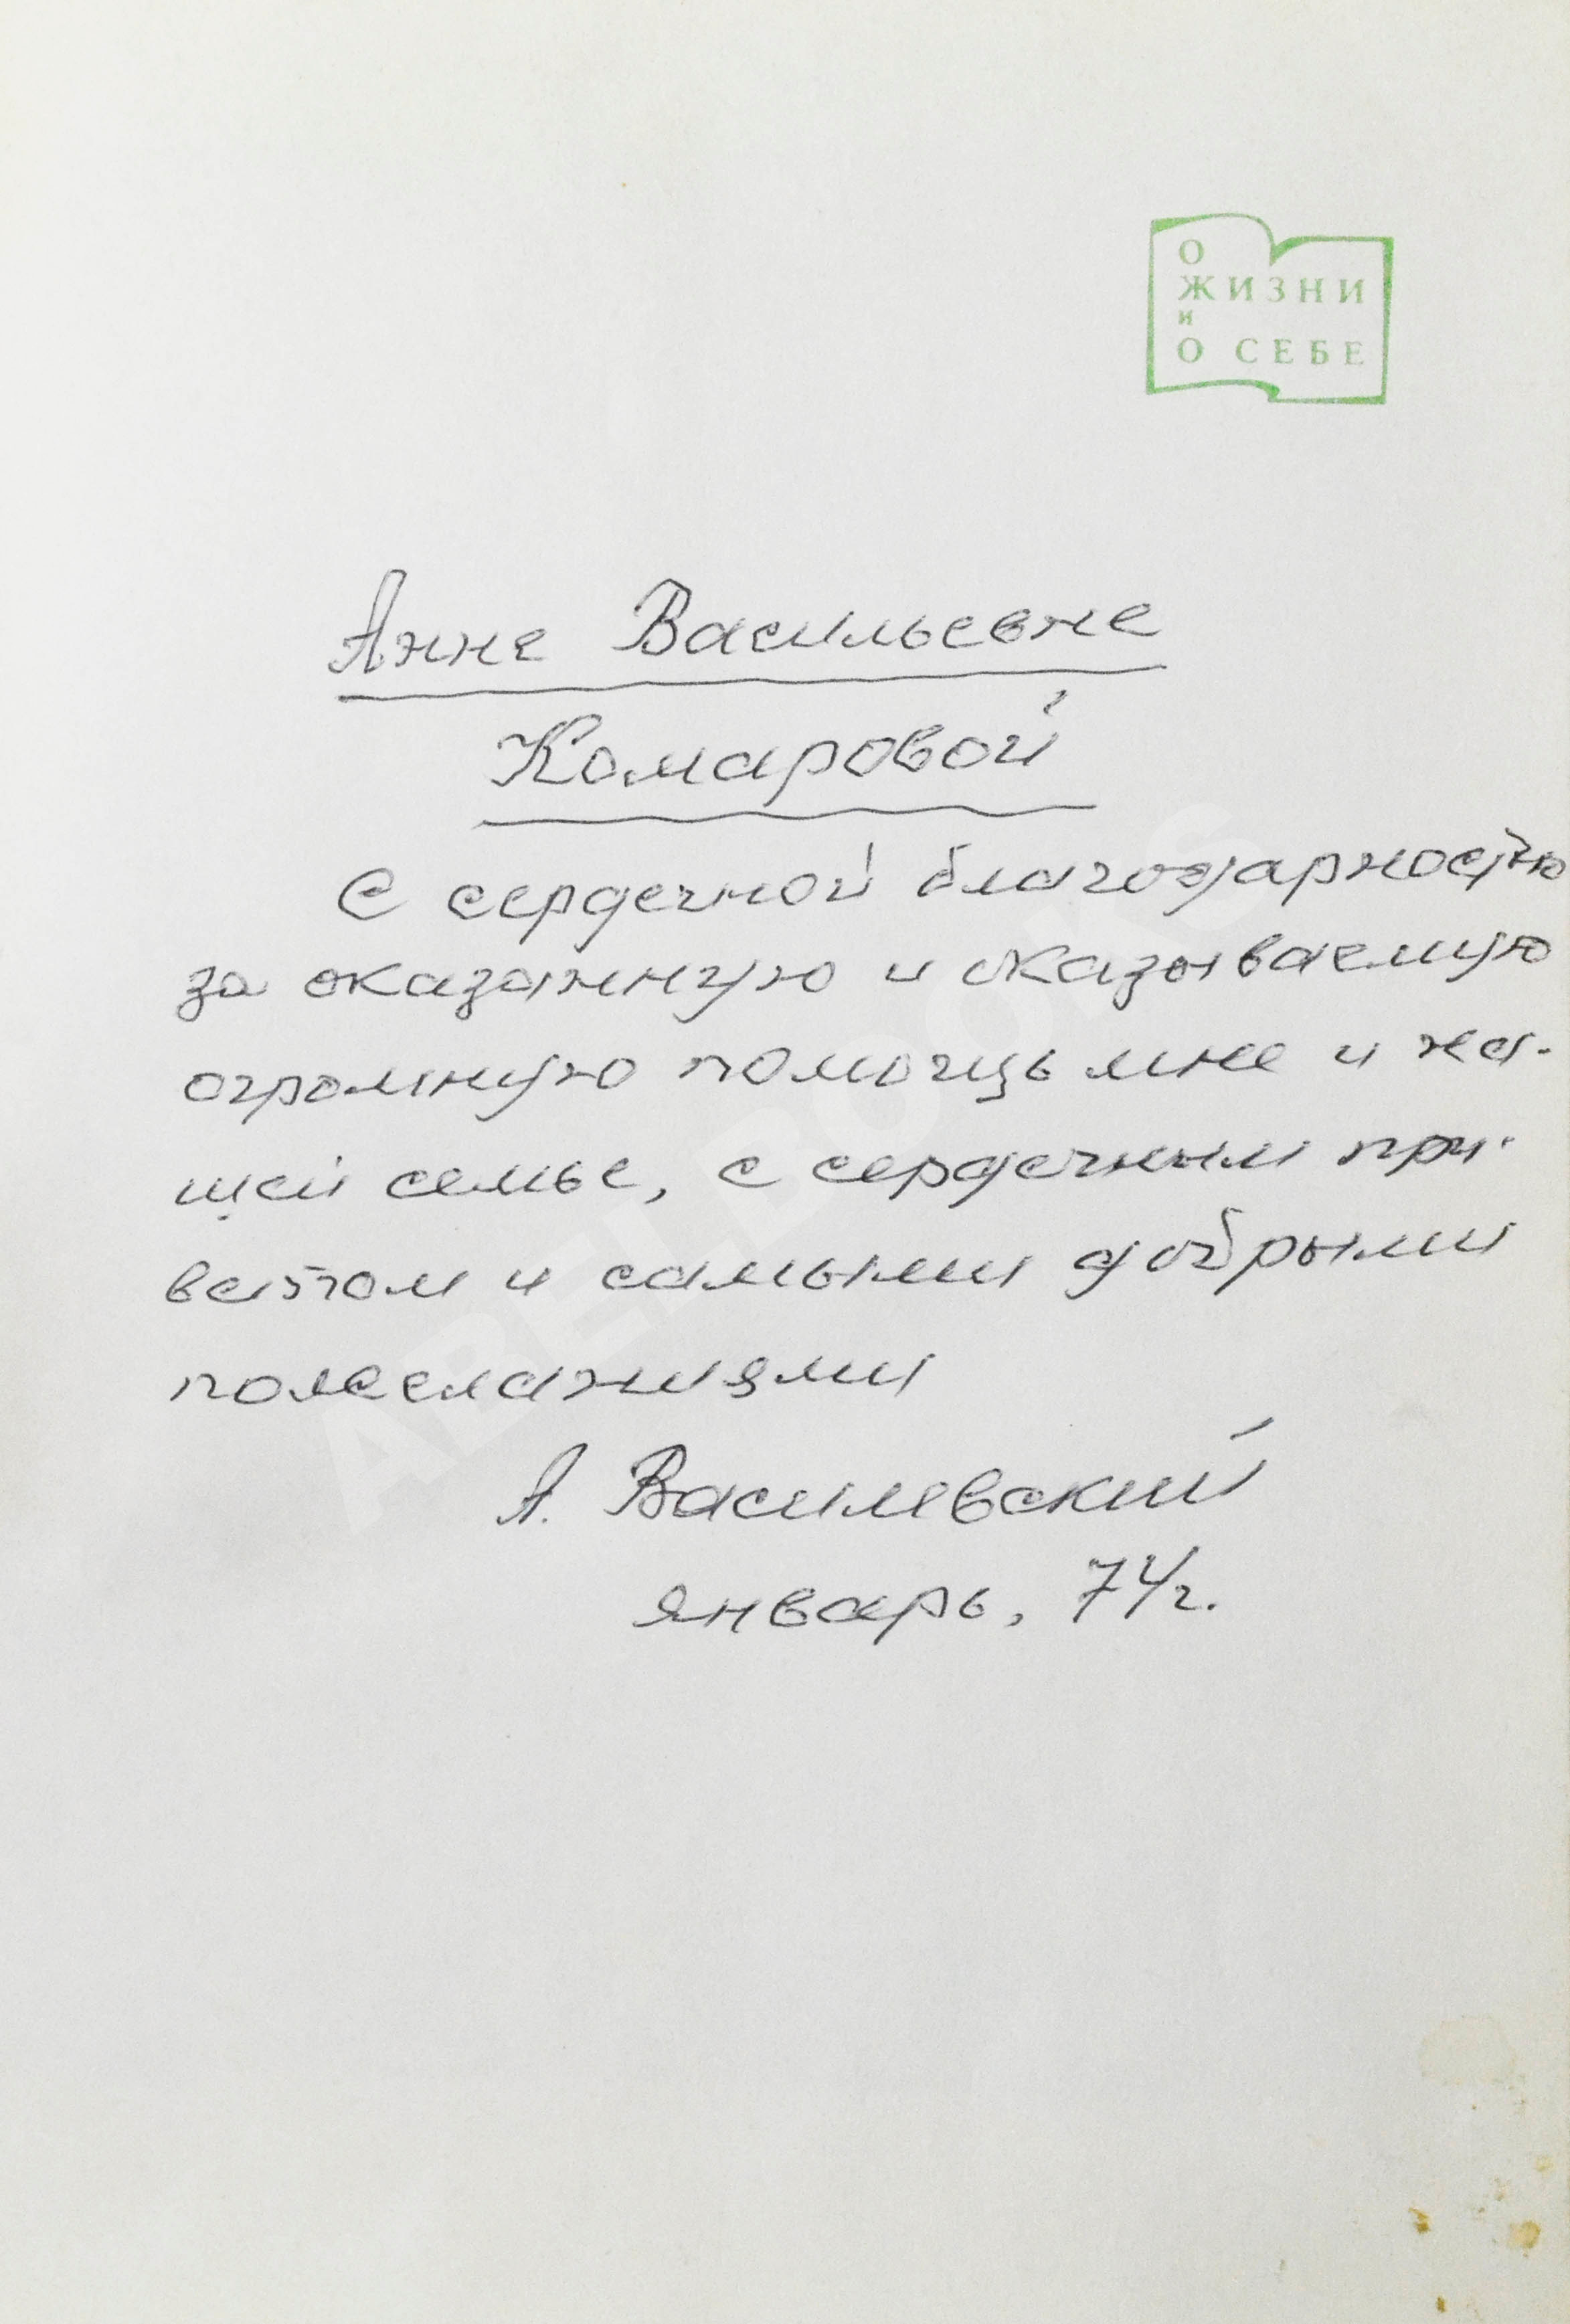 О
ЖИЗНИ
и
О СЕБЕ
Анне Васильевне
Комаровой
С сердечной благодарностью
за оказанную и оказываемую
огромную помощь мне и на-
шей семье, с сердечным при-
ветом и самыми добрыми
пожеланиями
А. Василевский
январь, 74/г.
ABELBOOKS